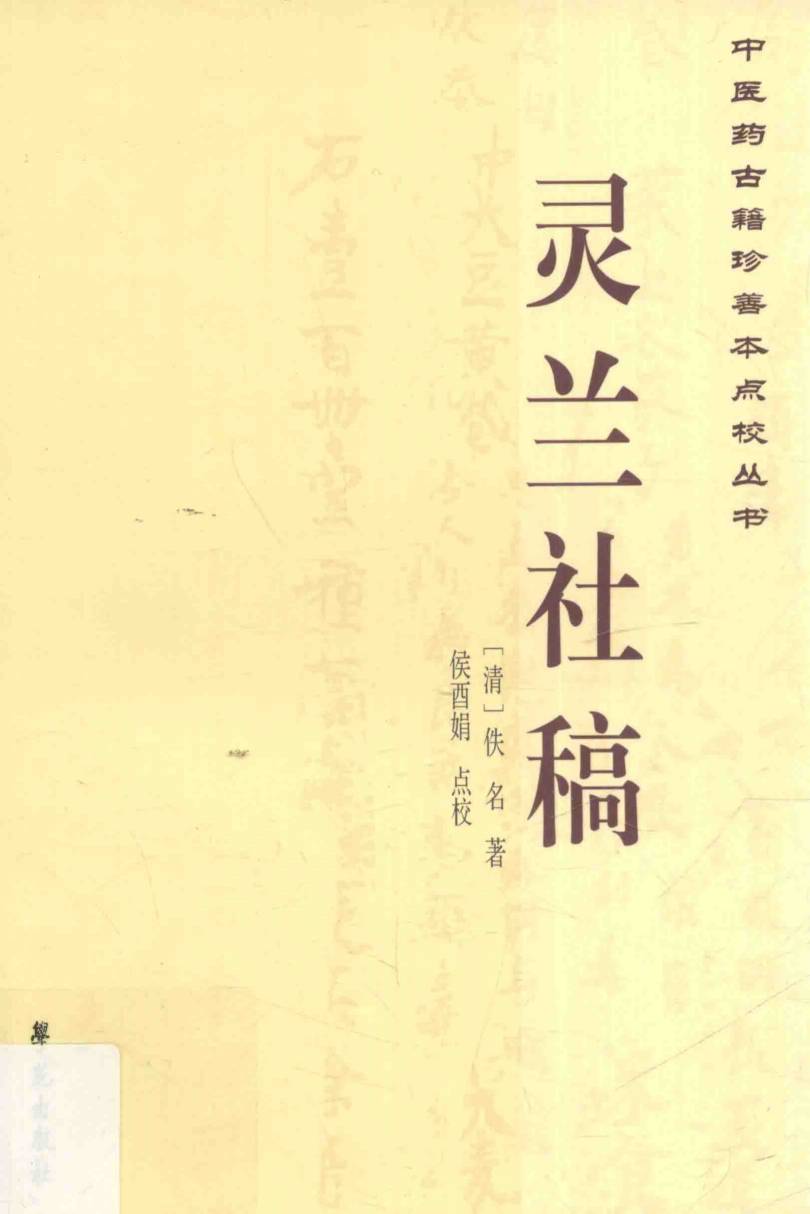 中医药古籍珍善本点校丛书
灵兰社稿
［清］佚名 著
侯酉娟 点校
學苑出版社